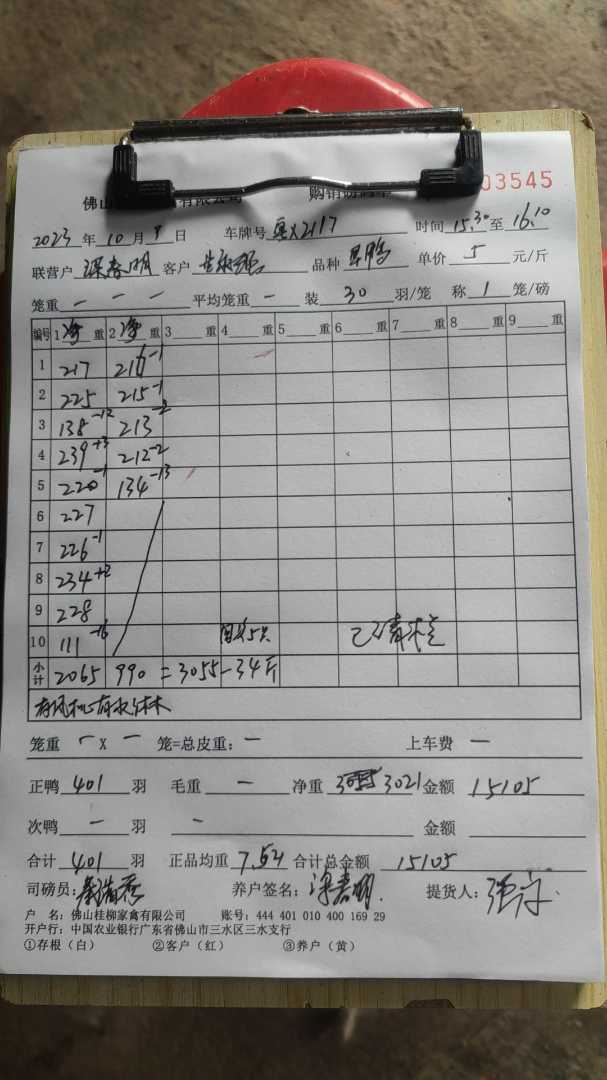 佛山 有限公司 购销 03545
2023 年 10 月 8 日 车牌号 粤X2117 时间 15.30 至 16.10
联营户 深春明 客户 品种 旱鸭 单价 5 元/斤
笼重 — — — 平均笼重 — 装 30 羽/笼 称 1 笼/磅
编号 1 净 重 2 净 重 3 重 4 重 5 重 6 重 7 重 8 重 9 重
1 217 216 -1
2 225 215 -1
3 138 -12 213 -2
4 239 +3 212 -2
5 220 -1 134 -13
6 227
7 226 -1
8 234 +2
9 228
10 111 -16 5只 已清
小计 2065 990 = 3055 - 34斤
有风机 有
笼重 — x — 笼=总皮重: — 上车费 —
正鸭 401 羽 毛重 — 净重 3055 3021 金额 15105
次鸭 — 羽 — 金额
合计 401 羽 正品均重 7.54 合计总金额 15105
司磅员: 养户签名: 提货人:
户 名: 佛山桂柳家禽有限公司 账号: 444 401 010 400 169 29
开户行: 中国农业银行广东省佛山市三水区三水支行
①存根(白) ②客户(红) ③养户(黄)